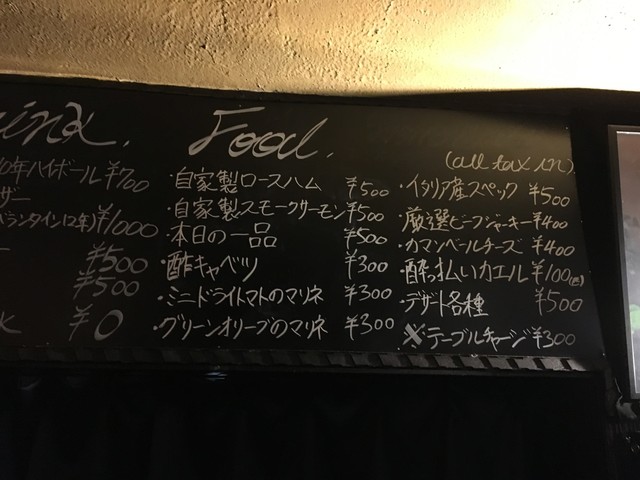 Food.
(all tax in)
0年ハイボール ¥700
ザー
バランタイン12年) ¥1000
¥500
¥500
¥0
・自家製ロースハム ¥500
・自家製スモークサーモン ¥500
・本日の一品 ¥500
・酢キャベツ ¥300
・ミニドライトマトのマリネ ¥300
・グリーンオリーブのマリネ ¥300
・イタリア産スペック ¥500
・厳選ビーフジャーキー ¥400
・カマンベールチーズ ¥400
・酔っ払いカエル ¥100
・デザート各種 ¥500
※テーブルチャージ ¥300